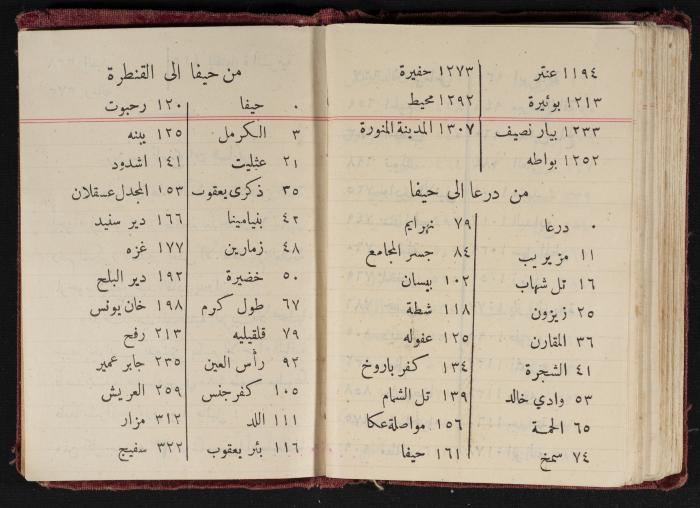 ١١٩٤ عنتر
١٢١٣ بوئيرة
١٢٣٣ بيار نصيف
١٢٥٢ بواطه
١٢٧٣ حفيرة
١٢٩٢ محيط
١٣٠٧ المدينة المنورة
من درعا الى حيفا
٠ درعا
١١ مزيريب
١٦ تل شهاب
٢٥ زيزون
٣٦ المقارن
٤١ الشجرة
٥٣ وادي خالد
٦٥ الحمة
٧٤ سمخ
٧٩ نهرايم
٨٤ جسر المجامع
١٠٢ بيسان
١١٨ شطة
١٢٥ عفوله
١٣٤ كفر باروخ
١٣٩ تل الشمام
١٥٦ مواصلة عكا
١٦١ حيفا
من حيفا الى القنطرة
٠ حيفا
٣ الكرمل
٢١ عثليت
٣٥ ذكرى يعقوب
٤٢ بنيامينا
٤٨ زمارين
٥٠ خضيرة
٦٧ طول كرم
٧٩ قلقيليه
٩٢ رأس العين
١٠٥ كفر جنس
١١١ اللد
١١٦ بئر يعقوب
١٢٠ رحبوت
١٢٥ يبنه
١٤١ اشدود
١٥٣ المجدل عسقلان
١٦٦ دير سنيد
١٧٧ غزه
١٩٢ دير البلح
١٩٨ خان يونس
٢١٣ رفح
٢٣٥ جابر عمير
٢٥٩ العريش
٣١٢ مزار
٣٢٢ سفيج